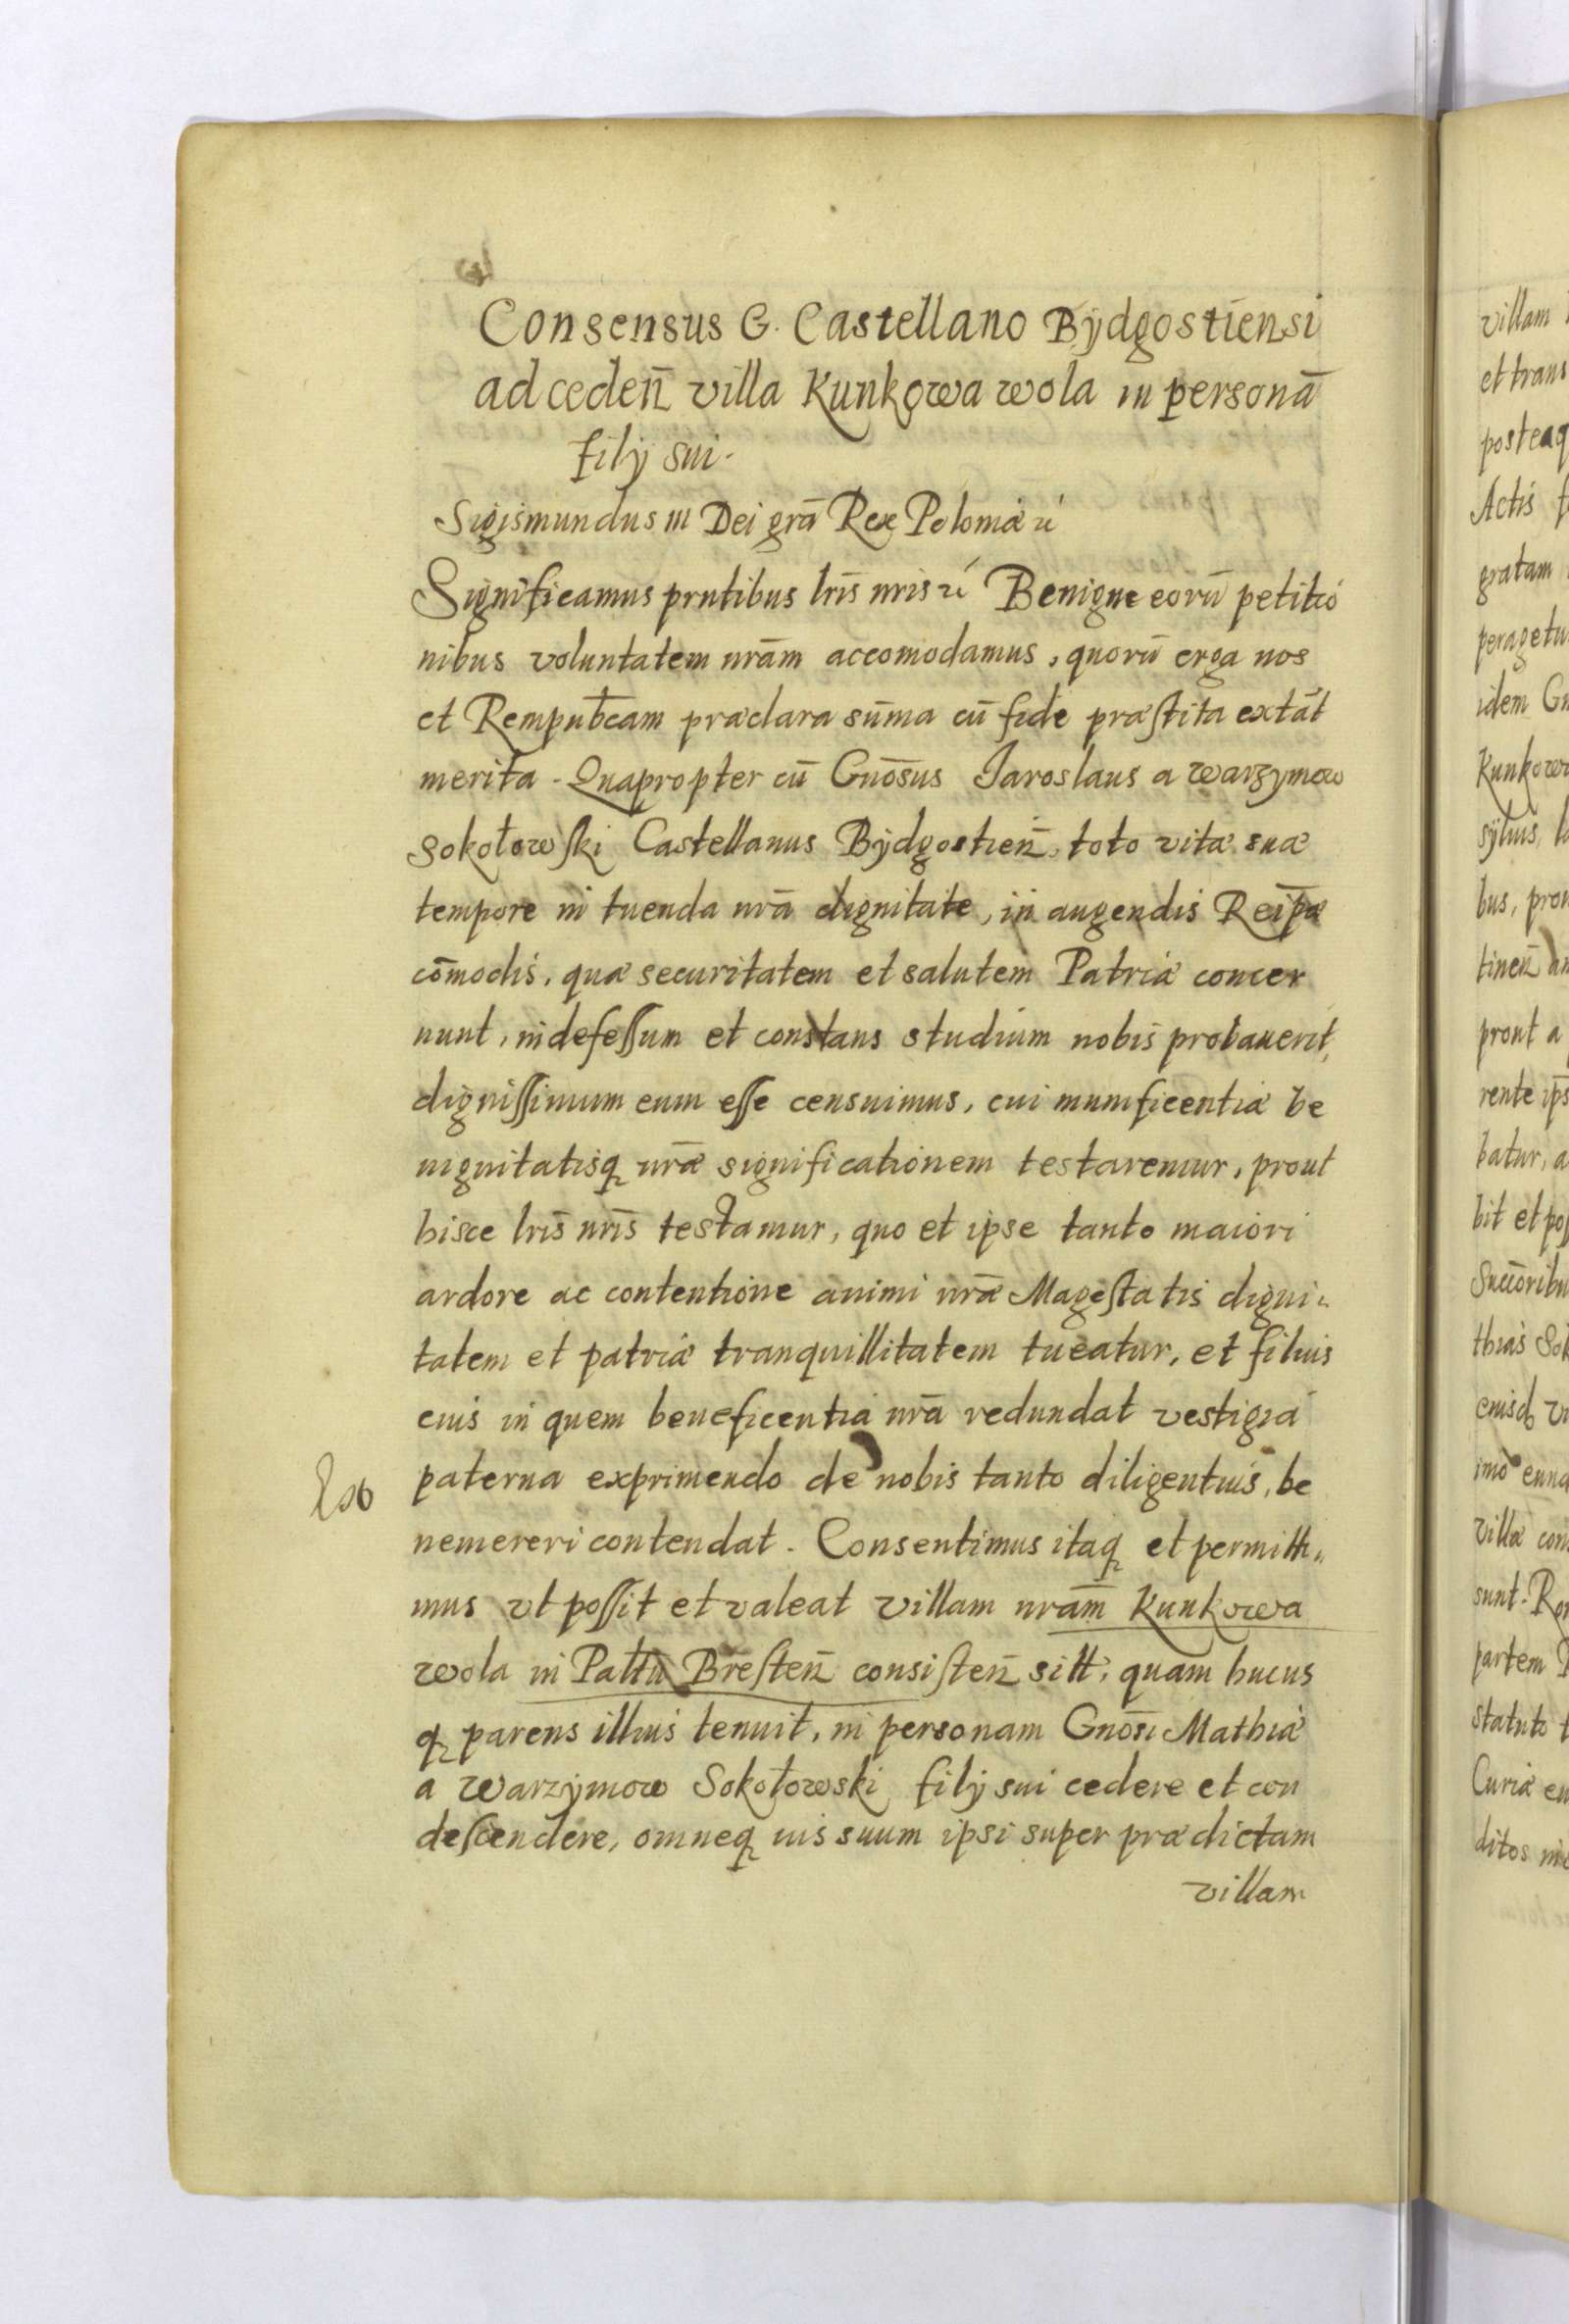 Consensus G. Castellano Bÿdgostiensi
ad ceden̄ villa Kunkowa wola in personā
filÿ sui.
Sigismundus III Dei grā Rex Poloniæ
Significamus prntibus lrīs nris Benigne eorū petitio
nibus voluntatem nrām accomodamus, quorū erga nos
et Rempubcam præclara sūma cū fide præſtita extāt
merita. Quapropter cū Gnōsus Jaroslaus a warzymow
Sokołowſki Castellanus Bÿdgostien̄, toto vitæ suæ
tempore in tuenda nrā dignitate, in augendis Reip̄æ
cōmodis, quæ securitatem et salutem Patriæ concer
nunt, indefeſſum et constans studium nobis probauerit,
digniſſimum eum eſſe censuimus, cui munificentiæ be
nignitatisq nræ significationem testaremur, prout
hisce lrīs nrīs testamur, quo et ipse tanto maiori
ardore ac contentione animi nræ Mageſtatis digni-
tatem et patriæ tranquillitatem tueatur, et filius
eius in quem beneficentia nrā redundat vestigia
paterna exprimendo de nobis tanto diligentius, be
nemereri contendat. Consentimus itaq et permitti,,
mus vt poſſit et valeat villam nrām Kunkowa
wola in Palttū Breſten̄ consiſten̄ sitt, quam hucus
q parens illius tenuit, in personam Gnōsi Mathiæ
a warzÿmow Sokołowski filÿ sui cedere et con
deſcendere, omneq ius suum ipsi super prædictam
villam
villam
et trans
posteaq
Actis
gratam
peragetu
idem Gn
Kunkow
sÿluis,
bus, prou
tinen̄ an
prout a
rente ip̄s
batur, a
bit et poſ
Succōribu
thias Sok
eiusd
imo eund
villæ con
sunt.
partem
Statuto
Curiæ
ditos